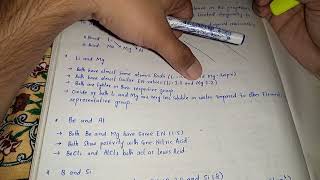 based on the properties
limited diagonally to
Li and Mg
→ Both have almost same atomic Radii (Li-
→ Both have almost similar EN values (Li-1.0 and Mg 1.2)
→ Both are lighter in their respective group.
→ Oxide of both Li and Mg are very less soluble in water compared to other Element
representative group.
Be and Al
→ Both Be and Mg have Same EN (1.5)
→ Both Show passivity with Conc Nitric Acid
→ BeCl₂ and AlCl₃ both act as Lewis Acid
B and Si